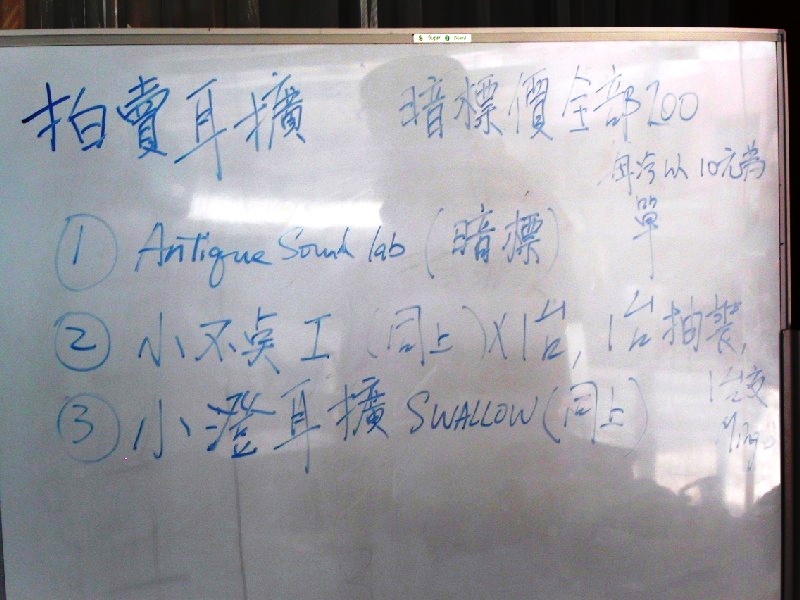 拍賣耳擴 暗標價全部200
每次以10元為
單
① Antique Sound lab (暗標)
② 小不点 I (同上) X1台, 1台拍裝,
1台交
③ 小澄耳擴 SWALLOW (同上)